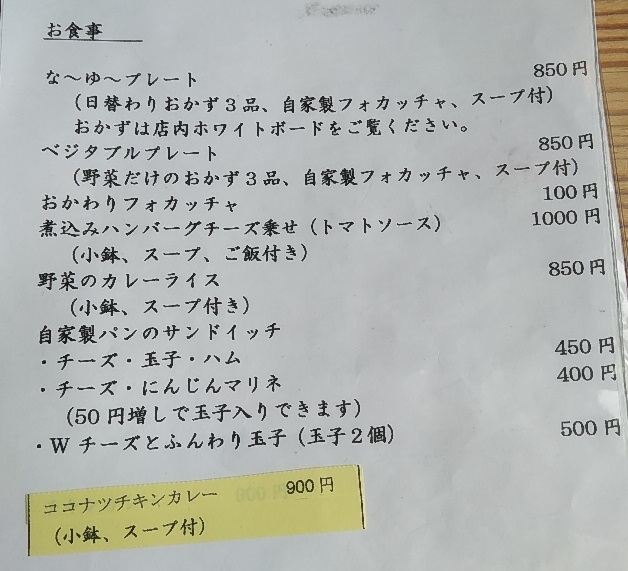 お食事
な～ゆ～プレート 850円
(日替わりおかず３品、自家製フォカッチャ、スープ付)
おかずは店内ホワイトボードをご覧ください。
ベジタブルプレート 850円
(野菜だけのおかず３品、自家製フォカッチャ、スープ付)
おかわりフォカッチャ 100円
煮込みハンバーグチーズ乗せ(トマトソース) 1000円
(小鉢、スープ、ご飯付き)
野菜のカレーライス 850円
(小鉢、スープ付き)
自家製パンのサンドイッチ
・チーズ・玉子・ハム 450円
・チーズ・にんじんマリネ 400円
(50円増しで玉子入りできます)
・Ｗチーズとふんわり玉子(玉子２個) 500円
ココナツチキンカレー 900円
(小鉢、スープ付)